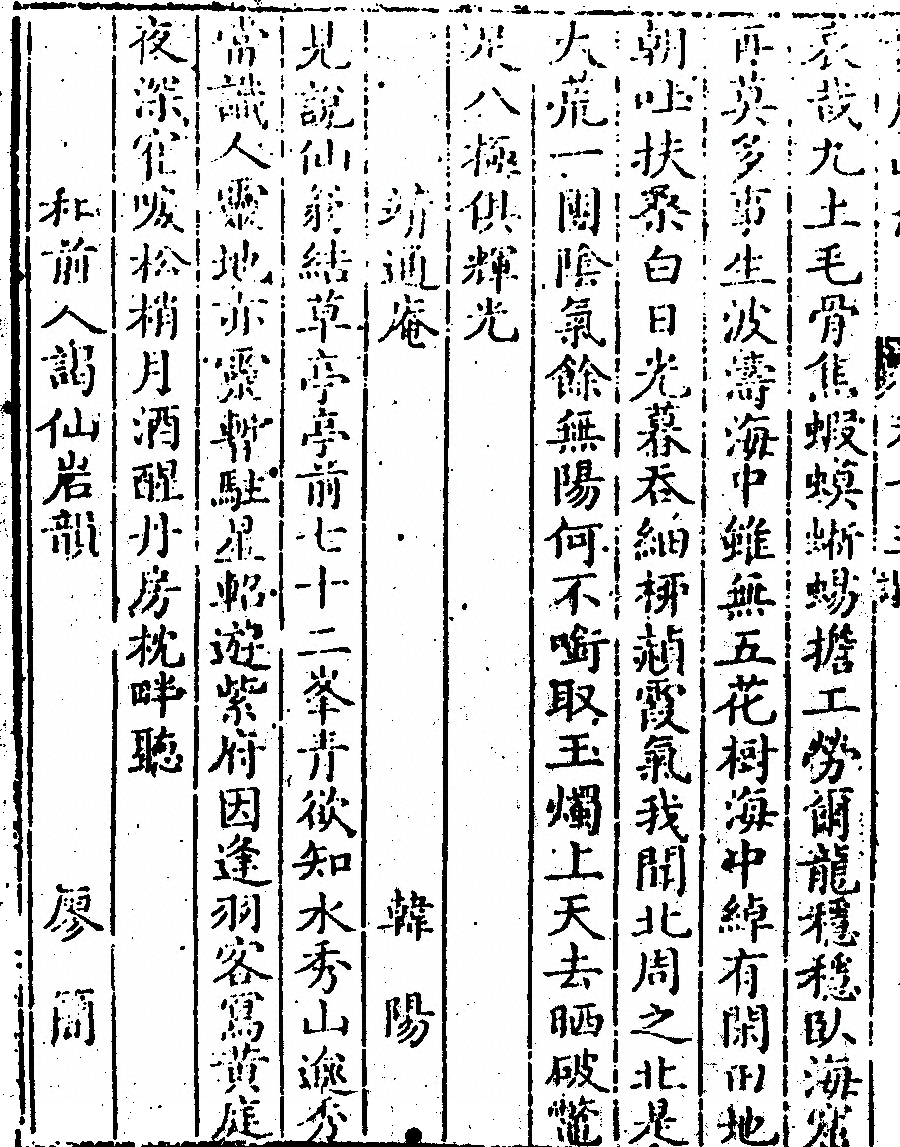 哀哉九土毛骨焦蝦蟆蜥蜴擔工勞爾龍穩穩臥海窟
再莫多事生波濤海中雖無五花樹海中綽有閑田地
朝吐扶桑白日光暮吞細柳赬霞氣我聞北周之北是
大荒一團陰氣餘無陽何不啣取玉燭上天去晒破
八極俱輝光
靖通庵 韓陽
見說仙翁結草亭亭前七十二峯青欲知水秀山邀秀
當識人靈地亦靈暫駐星軺遊紫府因逢羽客寫黃庭
夜深宿煖松梢月酒醒丹房枕畔聽
和前人謁仙岩韻 廖簡